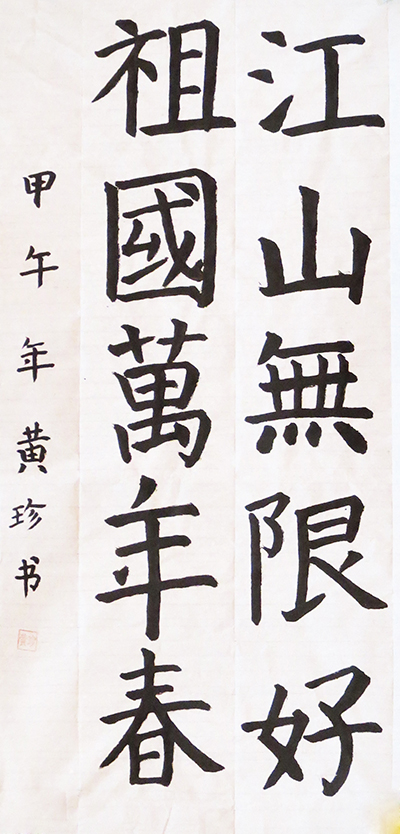 江山無限好
祖國萬年春
甲午年黄珍书